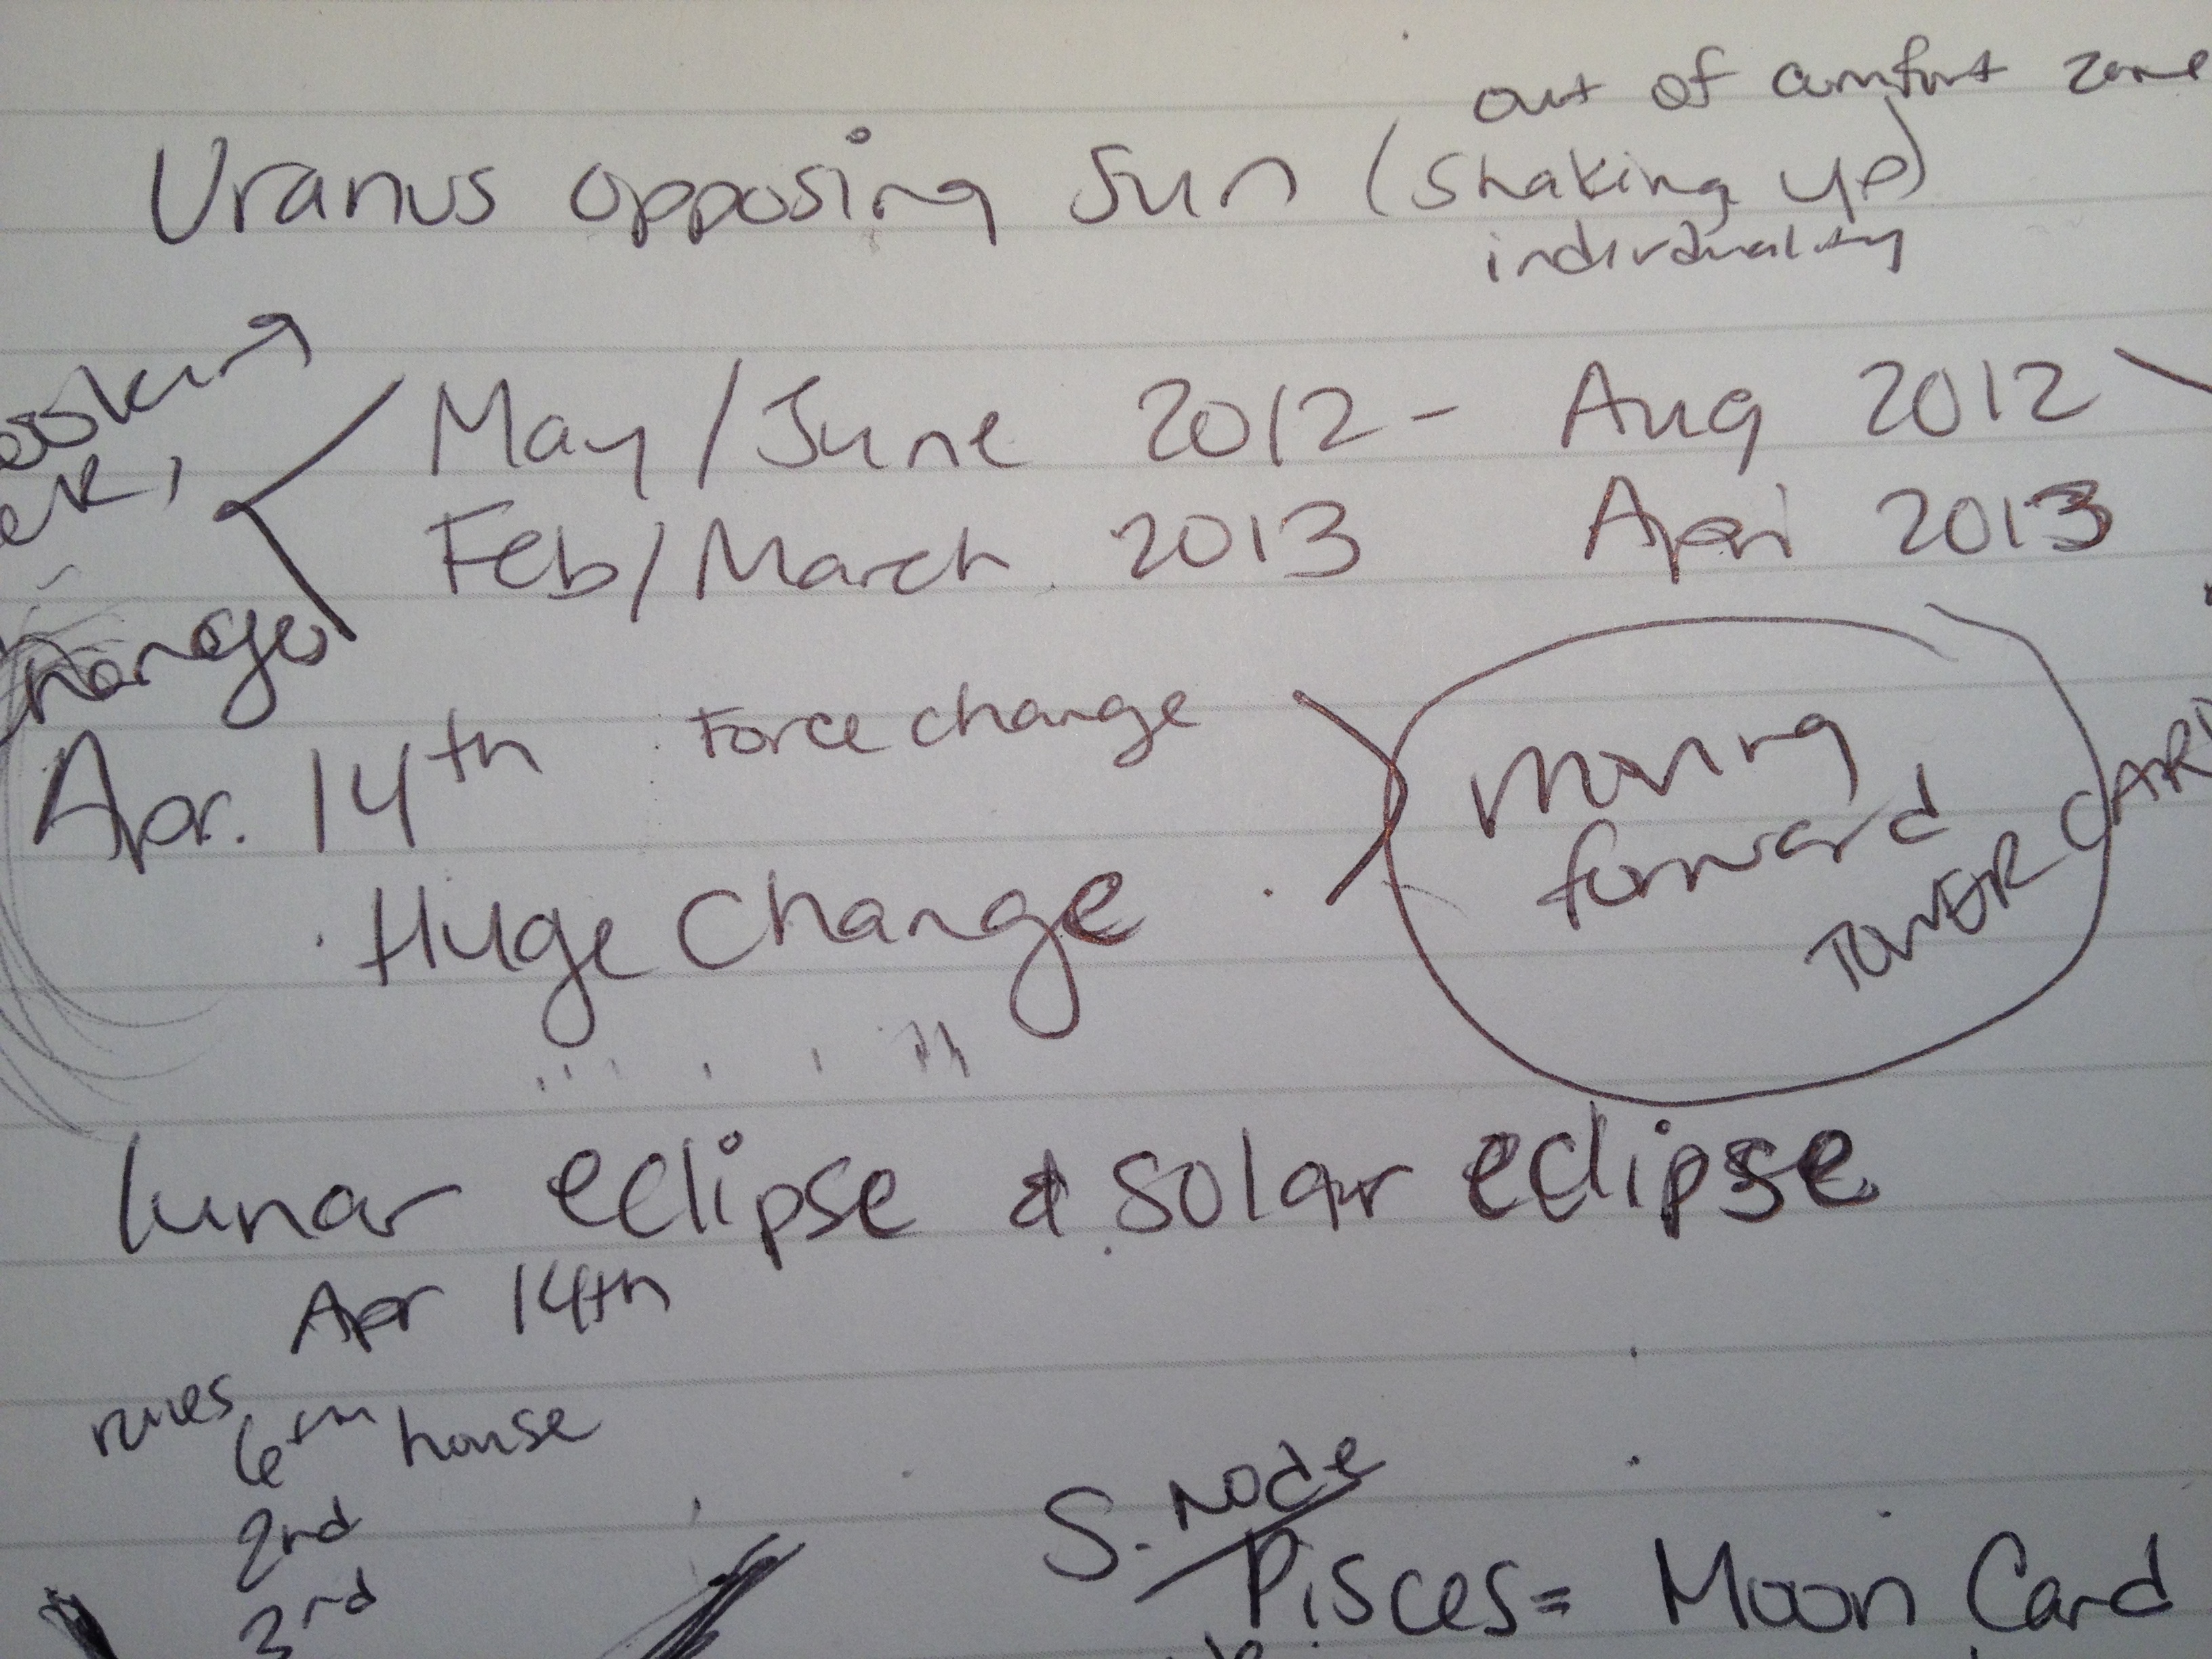 out of comfort zone
Uranus opposing Sun (shaking up)
individuality
May/June 2012 - Aug 2012
Feb/March 2013 April 2013
Apr. 14th Force change
Huge Change
Moving
forward
TOWER CARD
lunar eclipse & solar eclipse
Apr 14th
rules
6th house
2nd
3rd
S. Node
Pisces = Moon Card